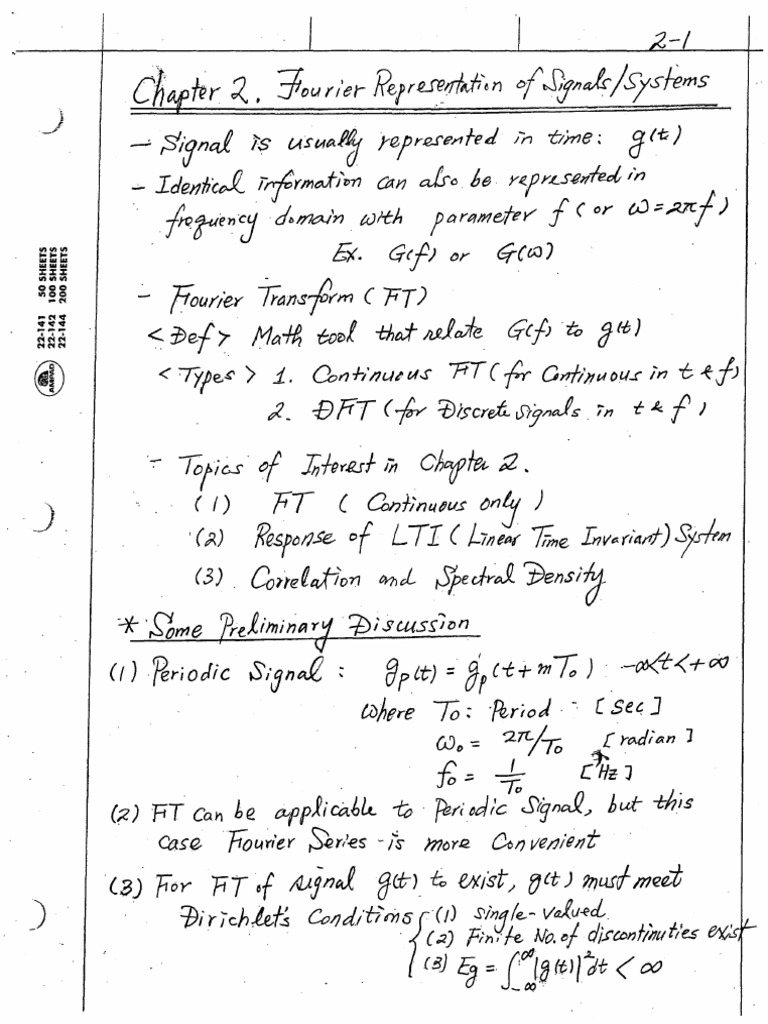 2-1
Chapter 2. Fourier Representation of Signals/Systems
- Signal is usually represented in time: g(t)
- Identical information can also be represented in
frequency domain with parameter f (or ω=2πf)
Ex. G(f) or G(ω)
- Fourier Transform (FT)
<Def> Math tool that relate G(f) to g(t)
<Types> 1. Continuous FT (for Continuous in t & f)
2. DFT (for Discrete signals in t & f)
- Topics of Interest in Chapter 2.
(1) FT (Continuous only)
(2) Response of LTI (Linear Time Invariant) System
(3) Correlation and Spectral Density
* Some Preliminary Discussion
(1) Periodic Signal : gp(t) = gp(t+mTo) -∞<t<+∞
where To: Period - [sec]
ωo = 2π/To [radian]
fo = 1/To [Hz]
(2) FT can be applicable to Periodic Signal, but this
case Fourier Series is more Convenient
(3) For FT of signal g(t) to exist, g(t) must meet
Dirichlet's Conditions { (1) single-valued
(2) Finite No. of discontinuties exist
(3) Eg = ∫_{-∞}^{∞} |g(t)|² dt < ∞
22-141 50 SHEETS
22-142 100 SHEETS
22-144 200 SHEETS
AMPAD